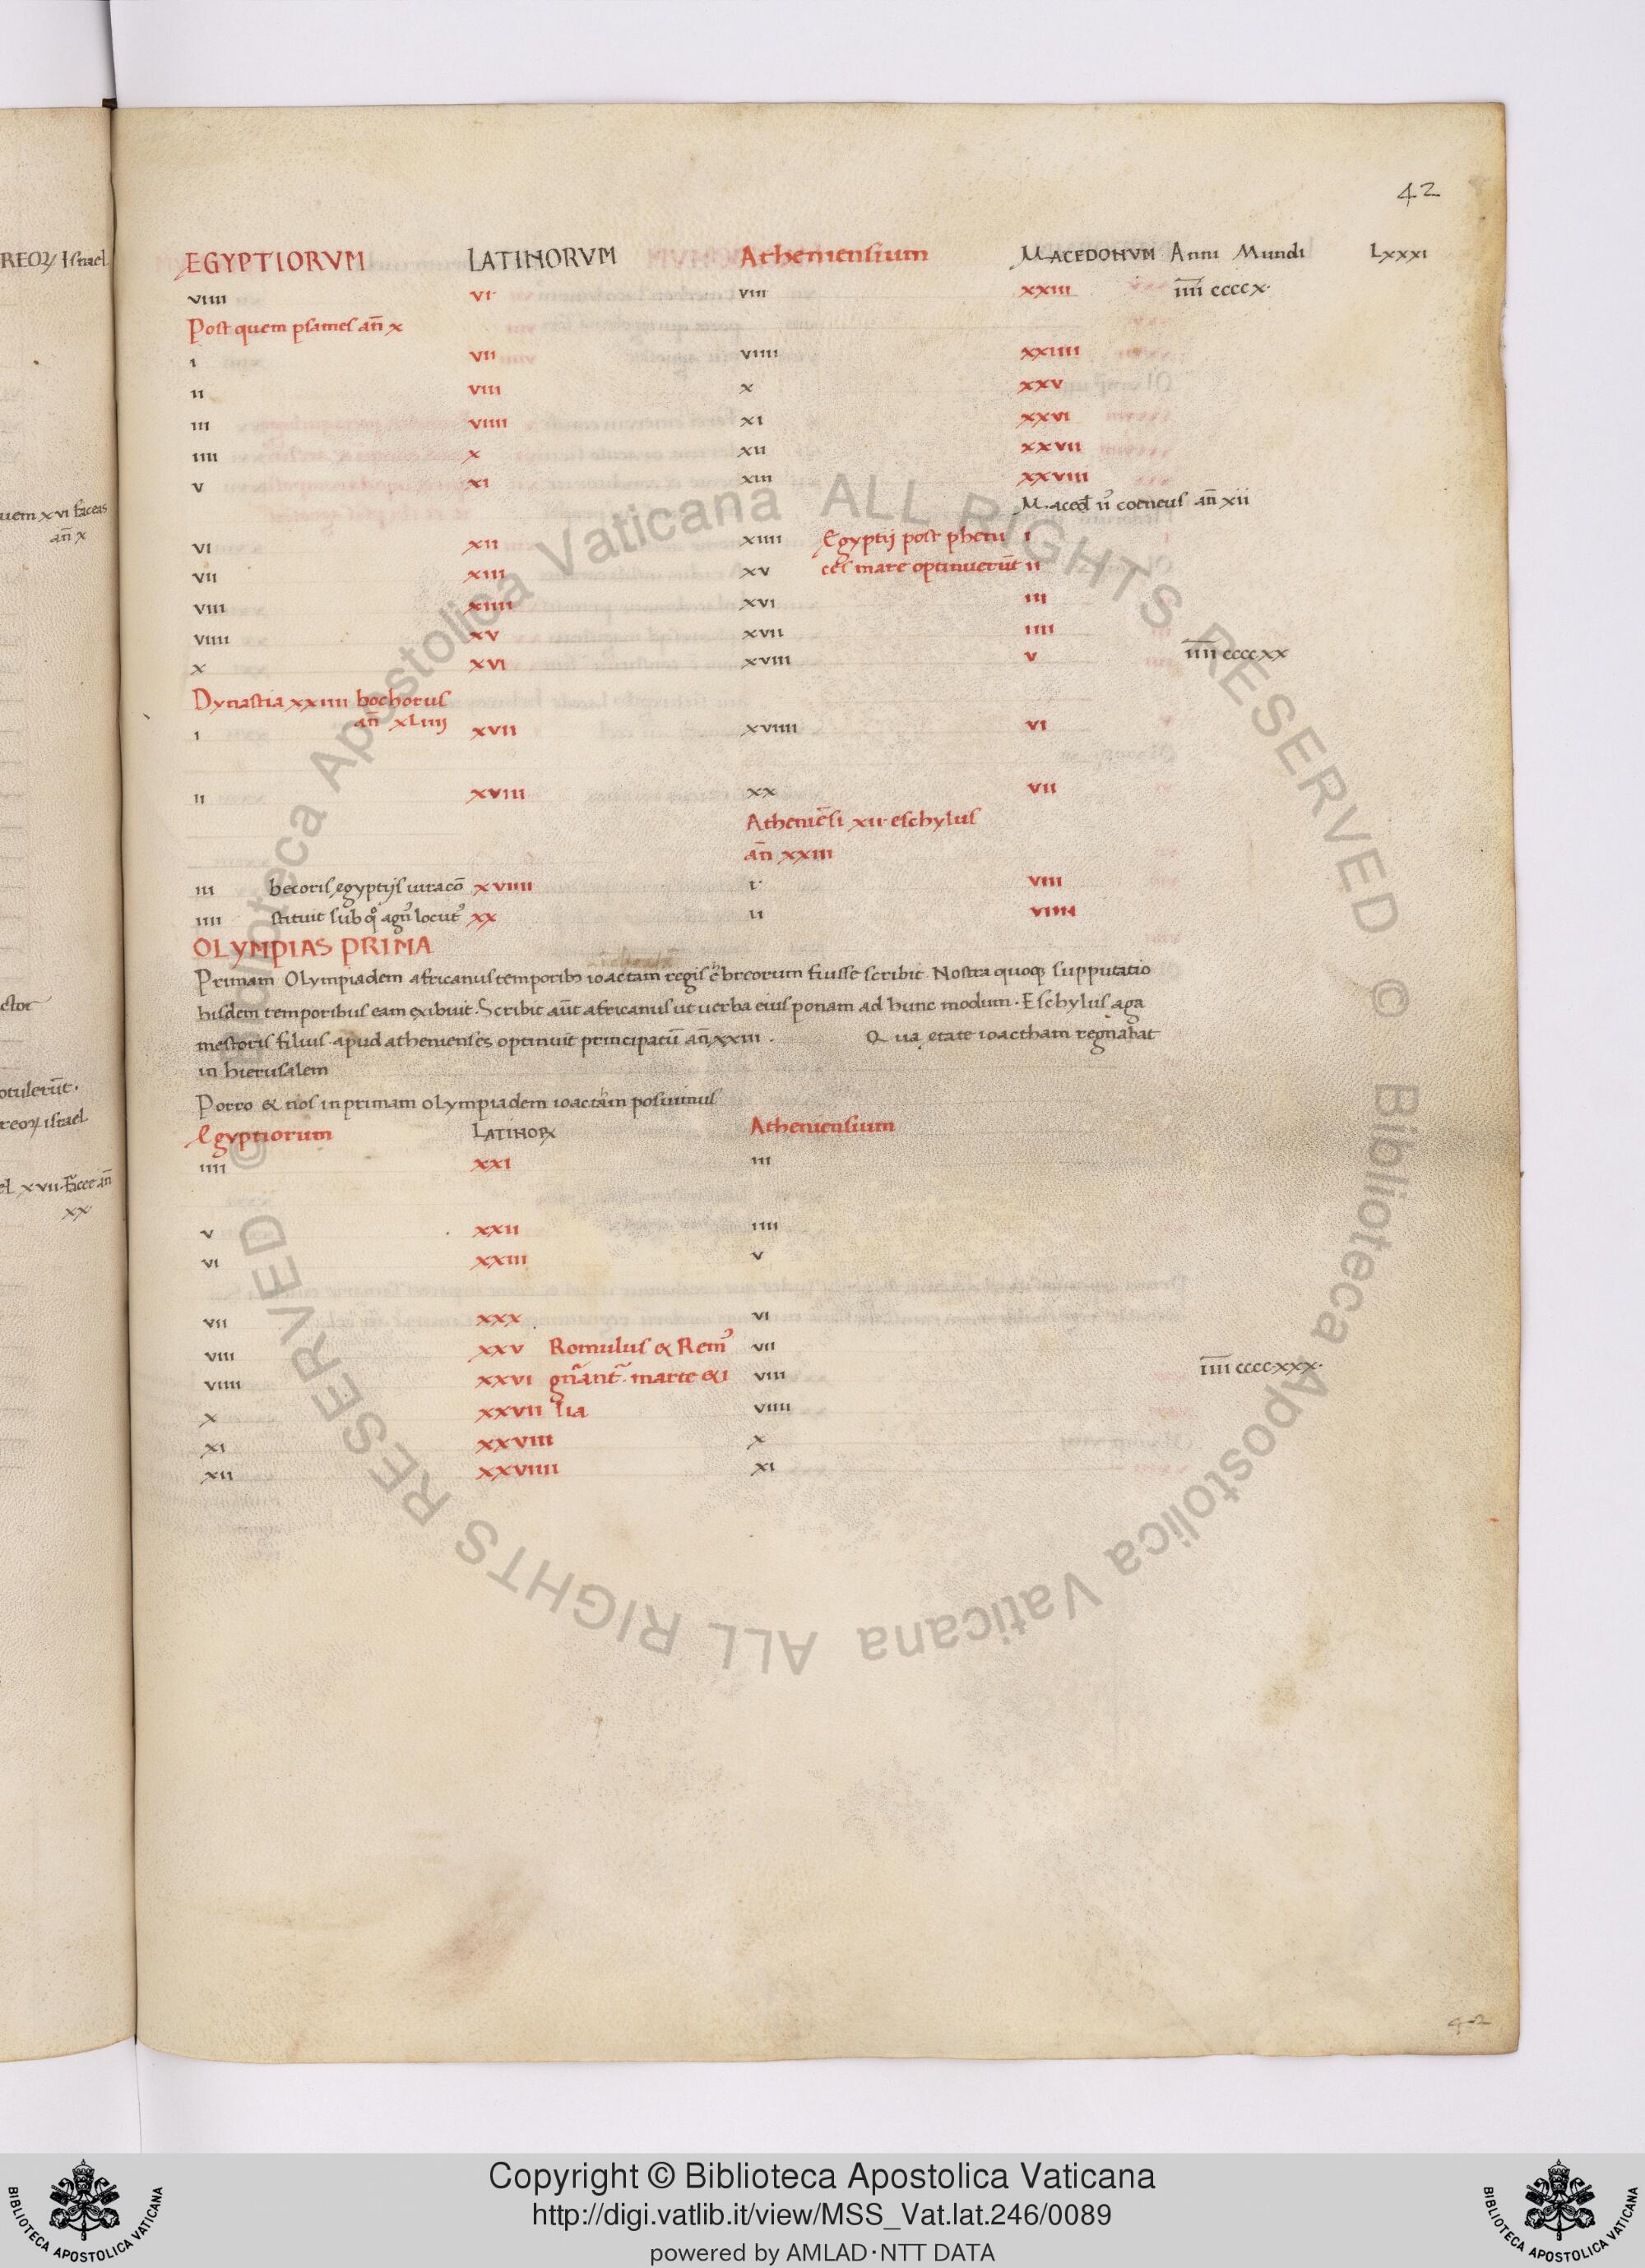 42
REOꝜ Israel
EGYPTIORVM LATINORVM Atheniensium MACEDONVM Anni Mundi LXXXI
VIIII VI· VIII XXIII I̅I̅I̅I̅ CCCCX·
Post quem psames an̄ x
I VII VIIII XXIIII
II VIII X XXV
III VIIII XI XXVI
IIII X XII XXVII
V XI XIII XXVIII
uem xvi faceas
an̄ x
Maced̄ ii᾽ coeneus an̄ xii
VI XII XIIII Egyptij post pheni I
VII XIII XV ces mare optinuerūt II
VIII XIIII XVI III
VIIII XV XVII IIII
X XVI XVIII V I̅I̅I̅I̅ CCCCXX
Dynastia xxiiii bochorus
an̄ xLiiij
I XVII XVIIII VI
II XVIII XX VII
Atheniēsi xii· eschylus
an̄ XXIII
III bocoris egyptijs iura cō XVIIII I· VIII
IIII stituit sub qͦ agn᾽ locut᾽ XX II VIIII
OLYMPIAS PRIMA
Primam Olympiadem africanus temporibꝫ ioactam regis ebreorum fuisse scribit. Nostra quoqꝫ supputatio
hisdem temporibus eam exibuit. Scribit aūt africanus ut uerba eius ponam ad hunc modum. Eschylus aga
mestoris filius. apud athenienses optinuit principatū an̄ xxiii. Qua etate ioactham regnabat
in hierusalem
Porro & nos in primam olympiadem ioactam posuimus
ctor
otulerūt.
reoꝝ israel
el xvii. facee an̄
xx
Egyptiorum LATINOꝜ Atheniensium
IIII XXI III
V XXII IIII
VI XXIII V
VII XXX VI
VIII XXV Romulus & Rem᾽ VII
VIIII XXVI gn̄ant᾽. marte & i VIII I̅I̅I̅I̅ CCCCXXX·
X XXVII lia VIIII
XI XXVIII X
XII XXVIIII XI
42
© Biblioteca Apostolica Vaticana ALL RIGHTS RESERVED © Biblioteca Apostolica Vaticana ALL RIGHTS RESERVED
BIBLIOTECA APOSTOLICA VATICANA
Copyright © Biblioteca Apostolica Vaticana
http://digi.vatlib.it/view/MSS_Vat.lat.246/0089
powered by AMLAD·NTT DATA
BIBLIOTECA APOSTOLICA VATICANA